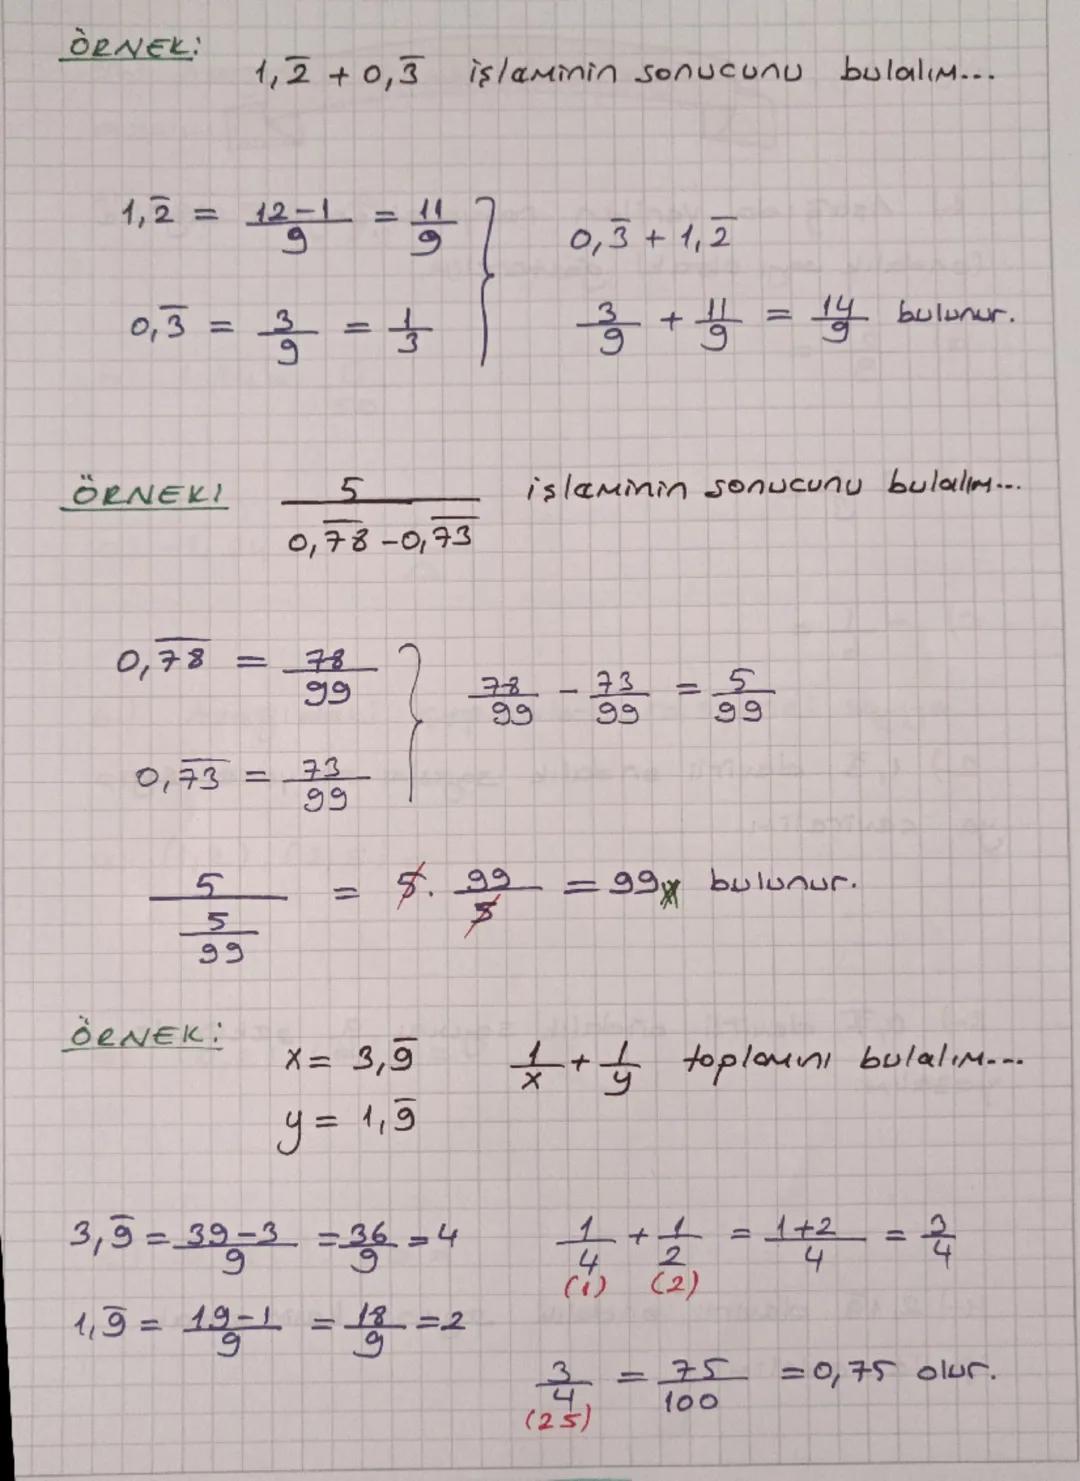 ÖRNEK:
1,2̅ + 0,3̅ işleminin sonucunu bulalım...
1,2̅ = 12-1/9 = 11/9
0,3̅ + 1,2̅
0,3̅ = 3/9 = 1/3
3/9 + 11/9 = 14/9 bulunur.
ÖRNEK! 5/(0,7̅8̅ - 0,7̅3̅) işleminin sonucunu bulalım...
0,7̅8̅ = 78/99
78/99 - 73/99 = 5/99
0,7̅3̅ = 73/99
5/(5/99) = 5. 99/5 = 99 bulunur.
ÖRNEK:
x = 3,9̅ 1/x + 1/y toplamını bulalım...
y = 1,9̅
3,9̅ = 39-3/9 = 36/9 = 4
1/4 + 1/2 = 1+2/4 = 3/4
(1) (2)
1,9̅ = 19-1/9 = 18/9 = 2
3/4 = 75/100 = 0,75 olur.
(25)